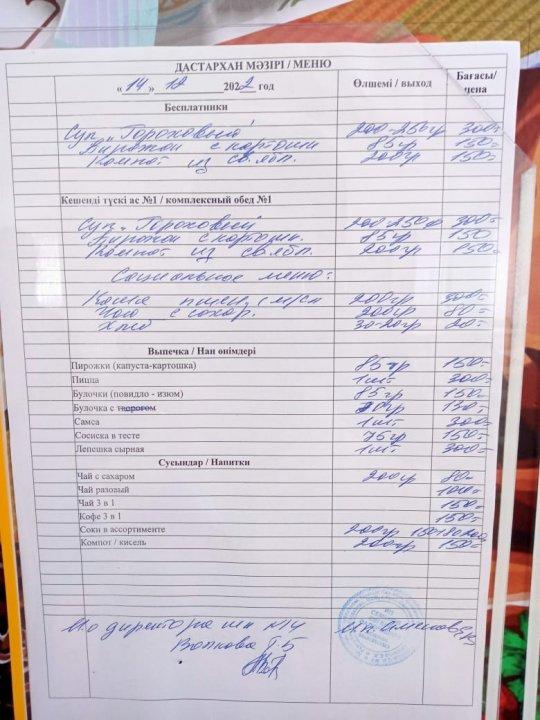 ДАСТАРХАН МӘЗІРІ / МЕНЮ
« 14 » 12 2022 год Өлшемі / выход Бағасы/ цена
Бесплатники
Суп "Гороховый" 200-250гр 300=
Пирожки с картошк 85гр 150=
Компот из св.ябл. 200гр 150=
Кешенді түскі ас №1 / комплексный обед №1
Суп "Гороховый" 200-250гр 300=
Пирожки с картошк. 85гр 150
Компот из св.ябл. 200гр 150=
Социальное меню:
Каша пшен. с м/сл 200гр 300=
Чай с сахар. 200гр 80=
Хлеб 30-20гр 20=
Выпечка / Нан өнімдері
Пирожки (капуста-картошка) 85гр 150=
Пицца 1шт 300=
Булочки (повидло - изюм) 85гр 150=
Булочка с творогом 130=
Самса 1шт 300=
Сосиска в тесте 75гр 150=
Лепешка сырная 1шт 300=
Сусындар / Напитки
Чай с сахаром 200гр 80=
Чай разовый 100=
Чай 3 в 1 150=
Кофе 3 в 1 150=
Соки в ассортименте 200гр 150 180 200
Компот / кисель 200гр 150=
И.о директора шк №14
Волкова Г Б